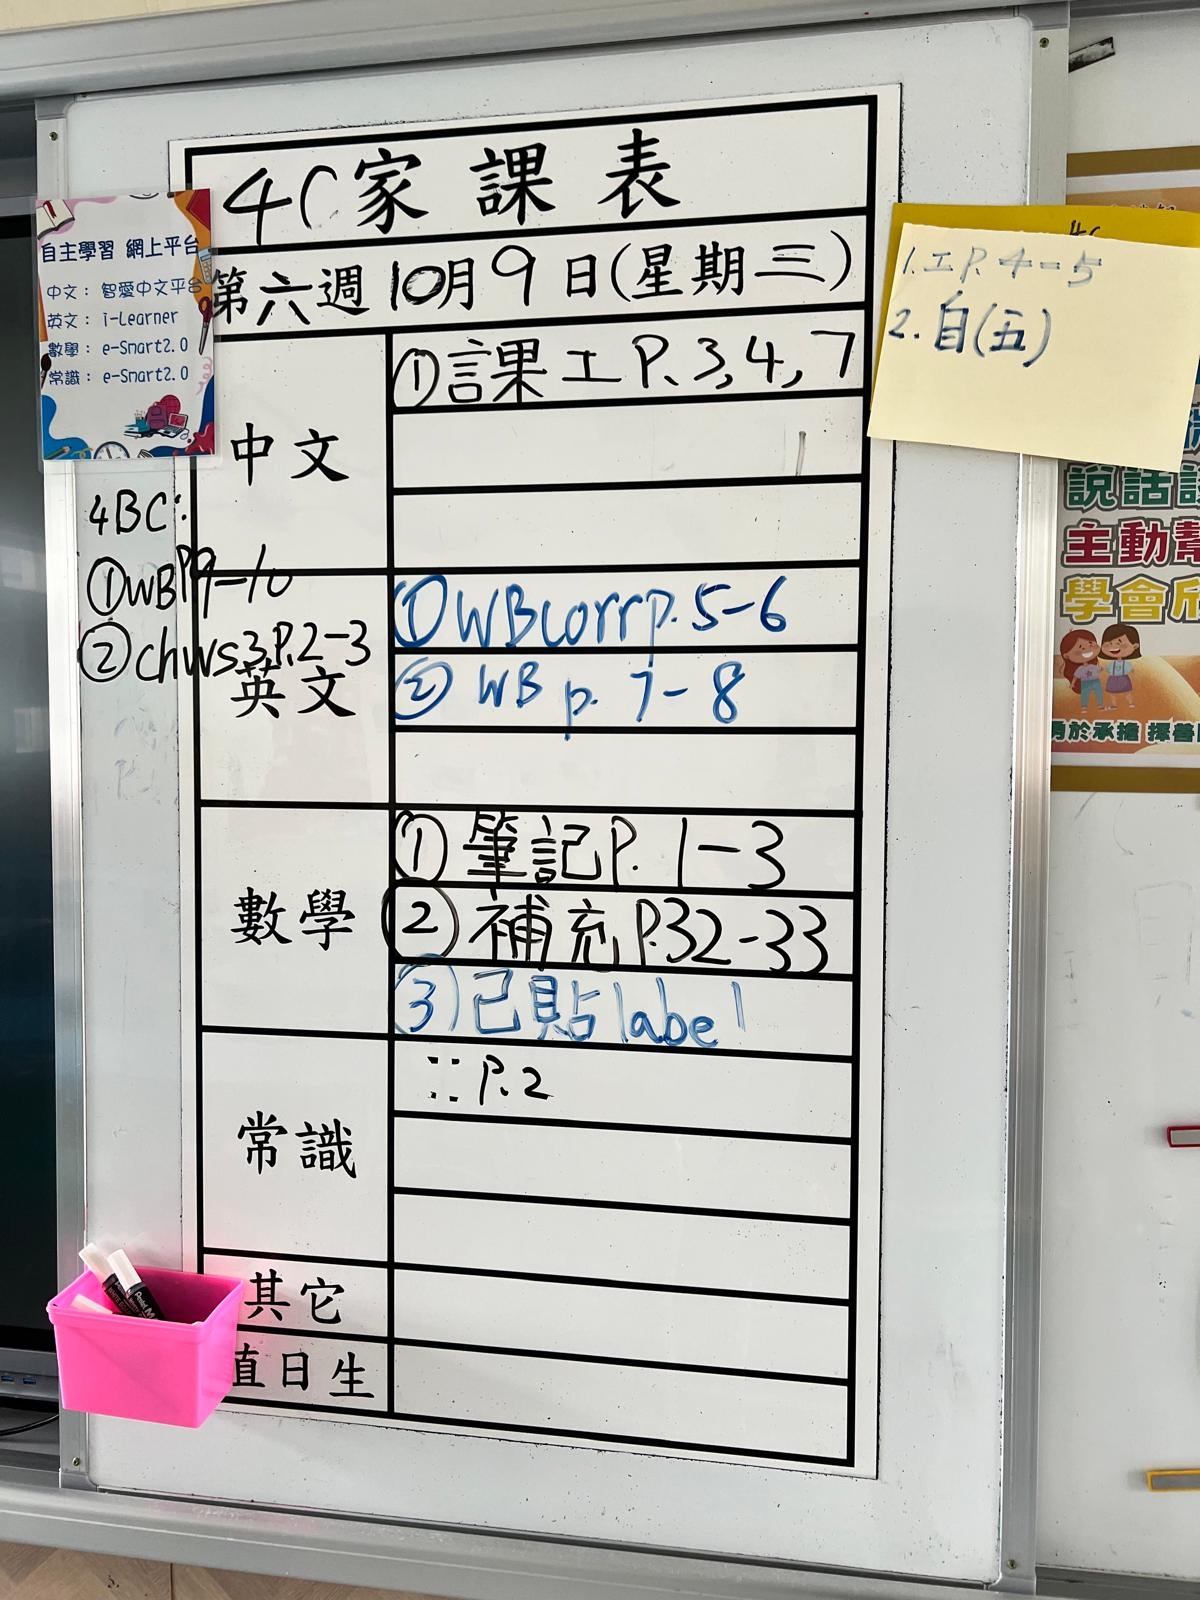 4C家課表
第六週 10月9日(星期三)
自主學習 網上平台
中文：智愛中文平台
英文：i-Learner
數學：e-Smart2.0
常識：e-Smart2.0
1. 工 P. 4-5
2. 自(五)
中文
①課工 P. 3, 4, 7
4BC:
①WB P9-10
②chws3 P.2-3
英文
①WB corr p. 5-6
② WB p. 7-8
數學
① 筆記 P. 1-3
② 補充 P.32-33
③ 已貼 label
常識
:: P. 2
其它
直日生
說話
主動
學會
勇於承擔